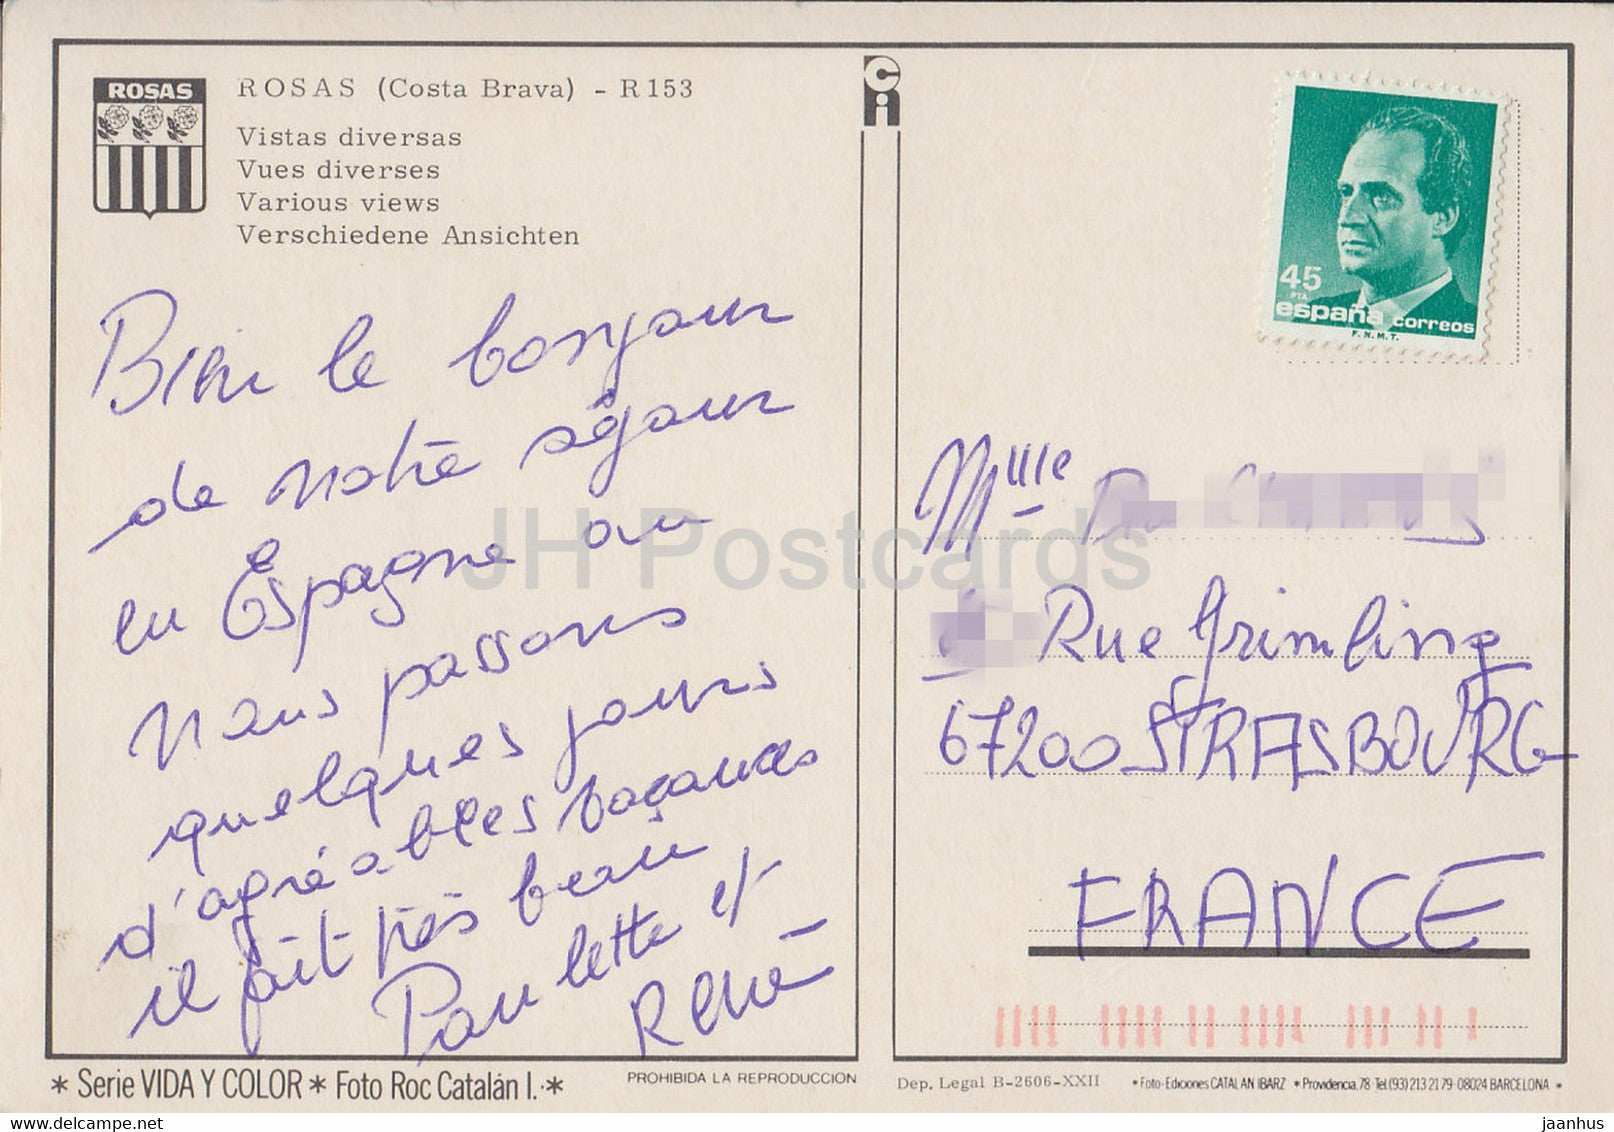 ROSAS
ROSAS (Costa Brava) - R153
Vistas diversas
Vues diverses
Various views
Verschiedene Ansichten
Bien le bonjour
de notre séjour
en Espagne ou
nous passons
quelques jours
d'agréables vacances
il fait très beau
Paulette et
René
* Serie VIDA Y COLOR * Foto Roc Catalán I. *
PROHIBIDA LA REPRODUCCION
Ci
45
PTA
españa correos
F.N.M.T.
Rue Grimling
67200 STRASBOURG
FRANCE
Dep. Legal B-2606-XXII
* Foto-Ediciones CATALAN IBARZ * Providencia, 78 Tel. (93) 213 21 79 - 08024 BARCELONA *
JH Postcards
www.delcampe.net
jaanhus